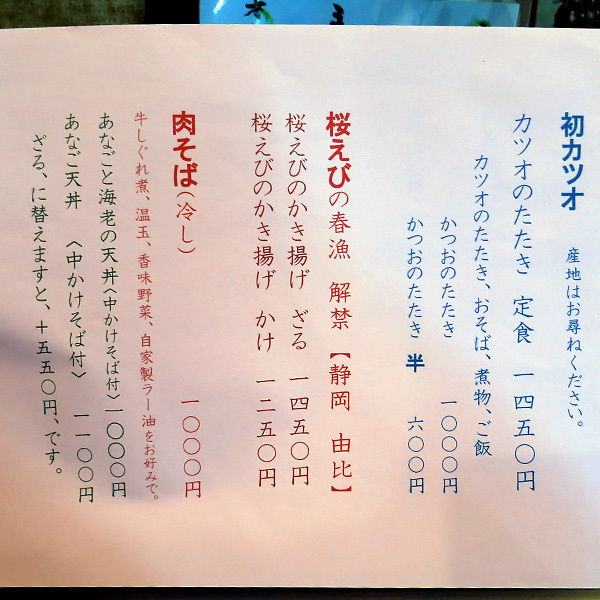 初カツオ　産地はお尋ねください。
カツオのたたき　定食　一四五〇円
カツオのたたき、おそば、煮物、ご飯
かつおのたたき　一〇〇〇円
かつおのたたき　半　六〇〇円
桜えびの春漁　解禁　【静岡　由比】
桜えびのかき揚げ　ざる　一四五〇円
桜えびのかき揚げ　かけ　一二五〇円
肉そば（冷し）　一〇〇〇円
牛しぐれ煮、温玉、香味野菜、自家製ラー油をお好みで。
あなごと海老の天丼〈中かけそば付〉一〇〇〇円
あなご天丼　〈中かけそば付〉　一一〇〇円
ざる、に替えますと、＋五五〇円、です。